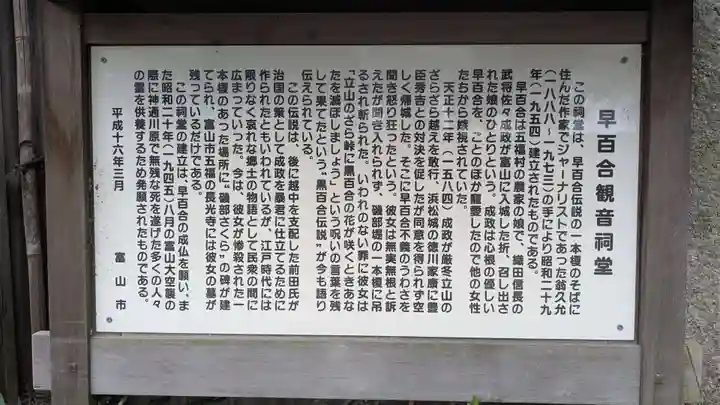 早百合観音祠堂
この祠堂は、早百合伝説の一本榎のそばに
住んだ作家でジャーナリストであった翁久允
(一八八八〜一九七三)の手により昭和二十九
年(一九五四)建立されたものである。
早百合は五福村の農家の娘で、織田信長の
武将佐々成政が富山に入城した折、召し出さ
れた娘のひとりという。成政は心根の優しい
早百合を、ことのほか寵愛したので他の女性
たちから嫉視されていた。
天正十二年(一五八四)、成政が厳冬立山の
ざらざら越えを敢行、浜松城の徳川家康に豊
臣秀吉との対決を促したが同意を得られず空
しく帰城した。そこに早百合不義のうわさを
聞き怒り狂ったという。彼女は無実無根と訴
えたが聞き入れられず、磯部堤の一本榎に吊
るされ斬られた。いわれのない罪に彼女は
「立山のざら峠に黒百合の花が咲くときあな
たを滅ぼしましょう」という呪いの言葉を残
して果てたという〝黒百合伝説〟が今も語り
伝えられている。
この伝説は、後に越中を支配した前田氏が
治国の策として成政を暴君に仕立てるために
作られたともいわれているが、江戸時代には
限りなく哀れな郷土の物語として民衆の間に
広まっていった。今は、彼女が惨殺された一
本榎のあった場所に〝磯部さくら〟の碑が建
てられ、富山市五福の長光寺には彼女の墓が
残っているだけである。
この祠堂の建立は、早百合の成仏を願い、ま
た昭和二十年(一九四五)八月の富山大空襲の
際に神通川原で無残な死を遂げた多くの人々
の霊を供養するため発願されたものである。
平成十六年三月
富山市